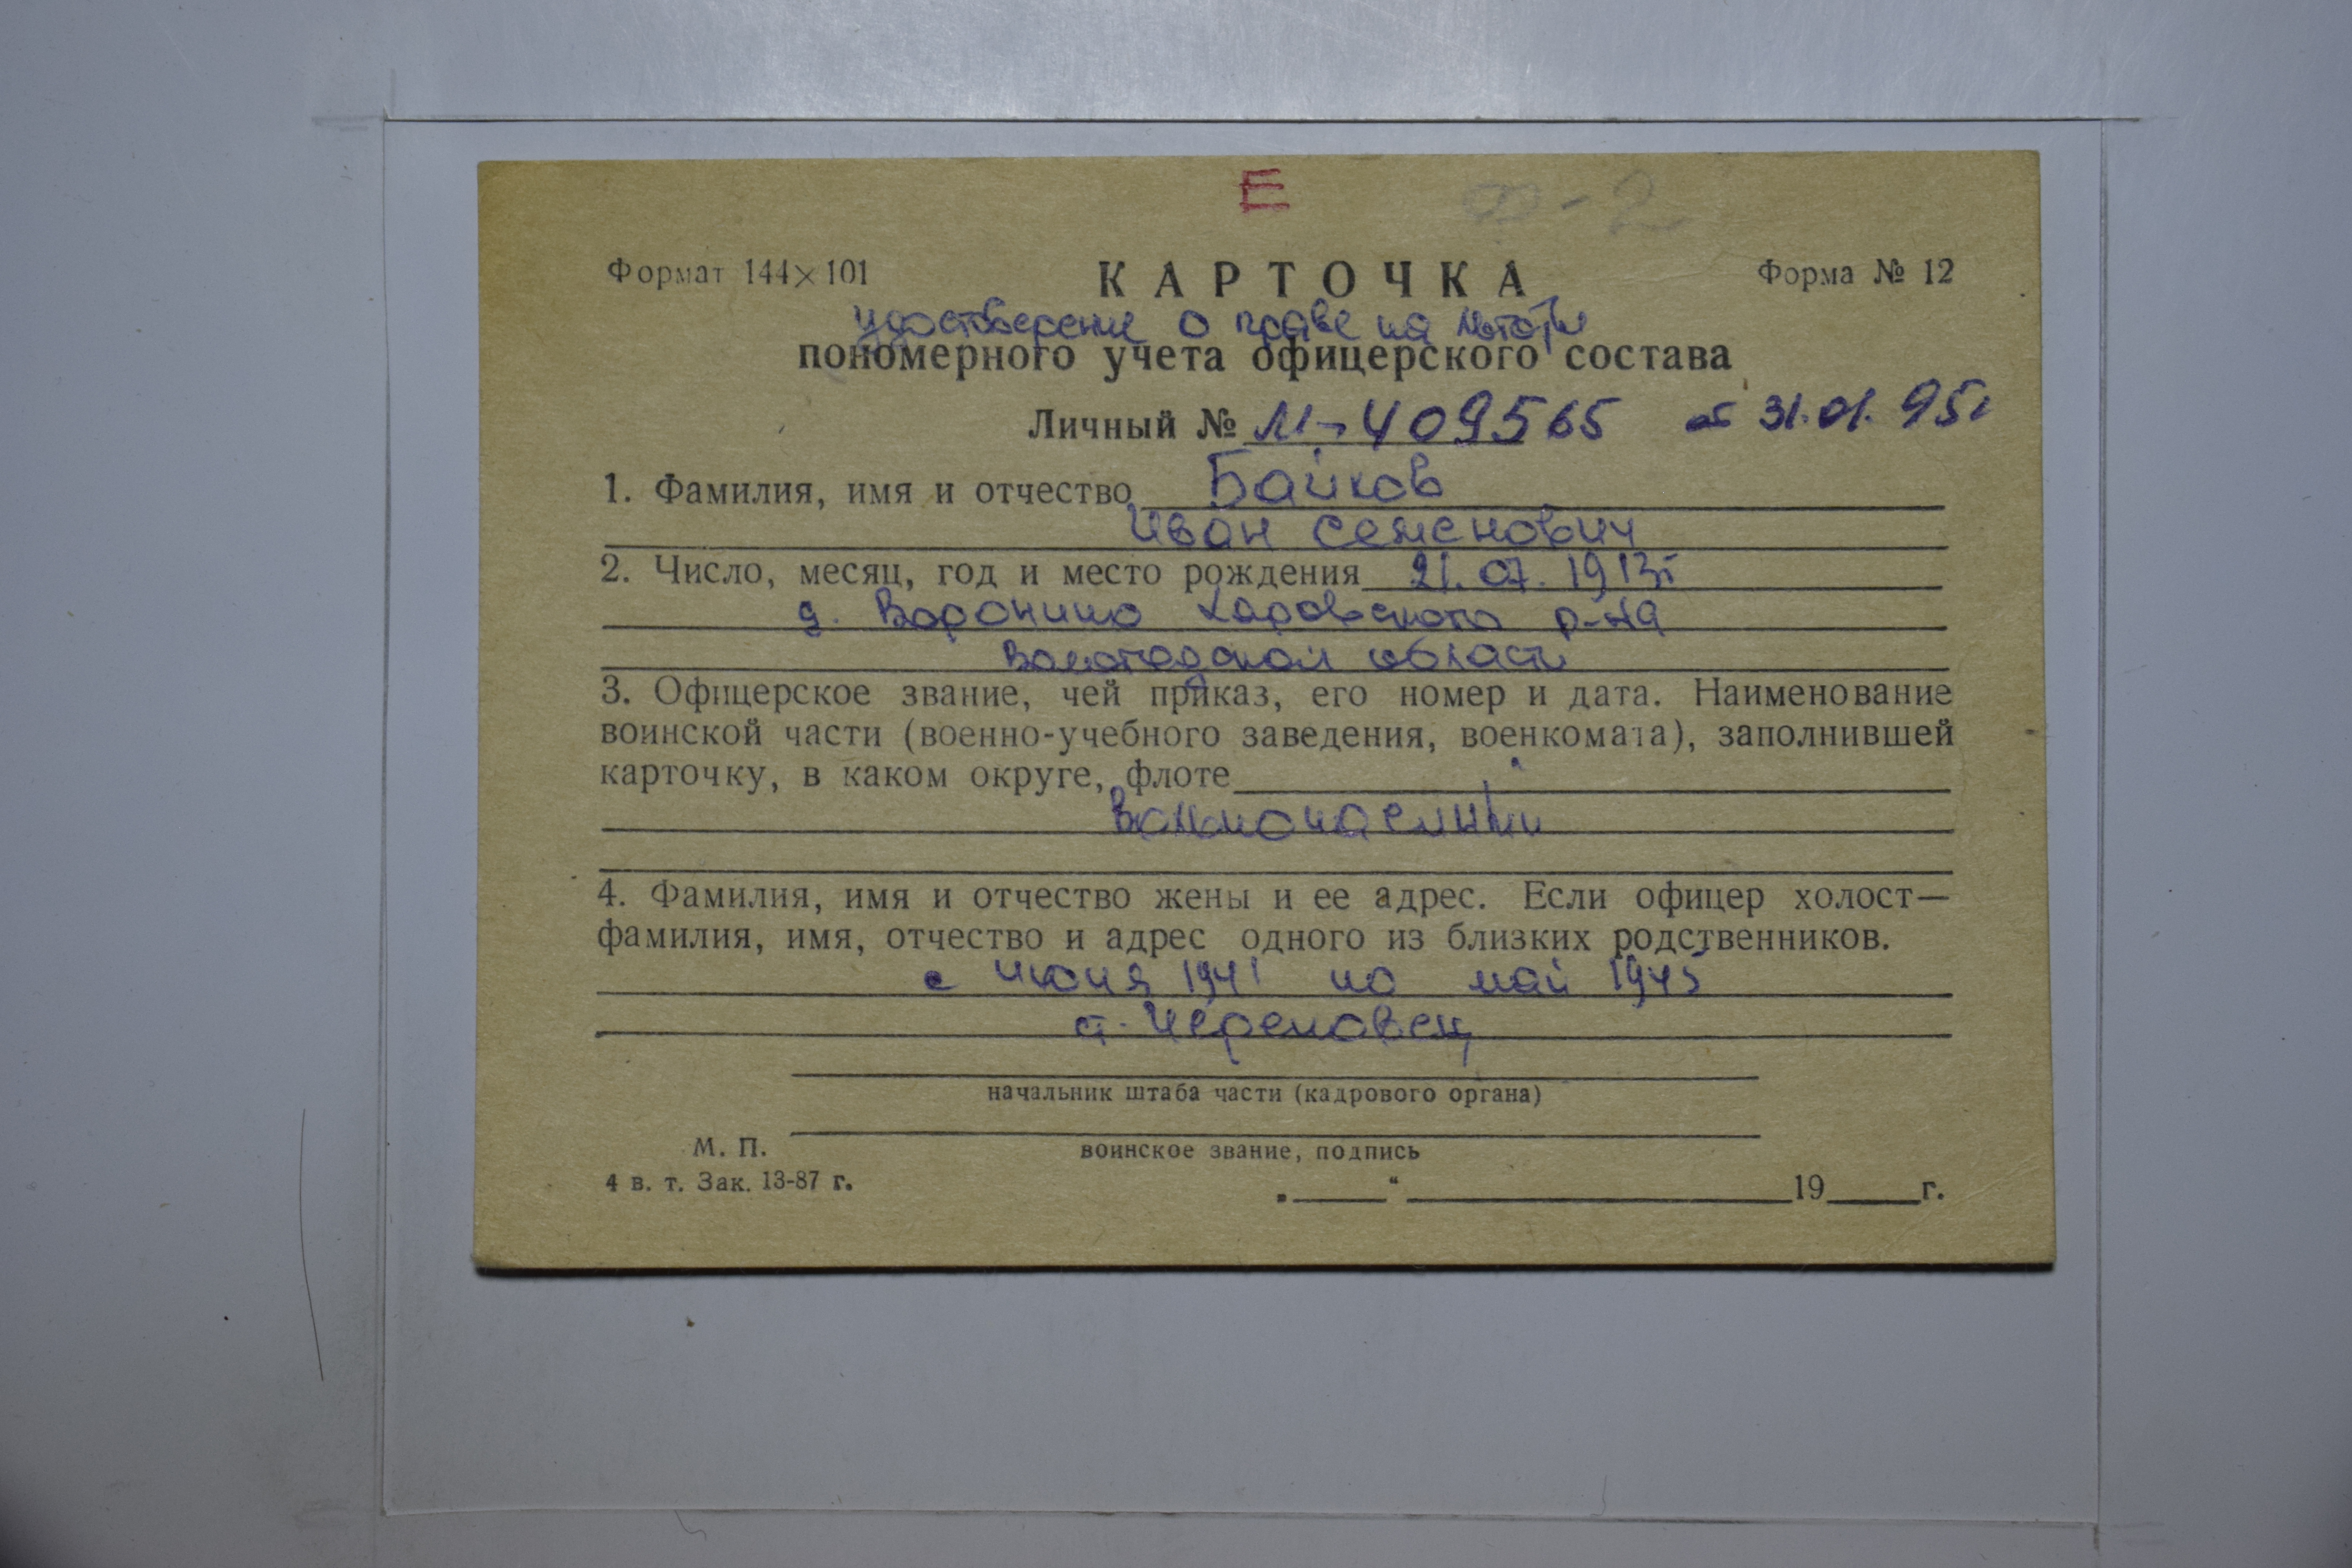 Е
Ф-2
Формат 144×101 КАРТОЧКА Форма № 12
удостоверение о праве на льготы
пономерного учета офицерского состава
Личный № М-409565 от 31.01.95г
1. Фамилия, имя и отчество Байков
Иван Семенович
2. Число, месяц, год и место рождения 21.07.1913г
д. Воронино Харовского р-на
Вологодской области
3. Офицерское звание, чей приказ, его номер и дата. Наименование
воинской части (военно-учебного заведения, военкомата), заполнившей
карточку, в каком округе, флоте
4. Фамилия, имя и отчество жены и ее адрес. Если офицер холост—
фамилия, имя, отчество и адрес одного из близких родственников.
с июня 1941 по май 1945
ст. Череповец
начальник штаба части (кадрового органа)
М. П. воинское звание, подпись
4 в. т. Зак. 13-87 г. „ “ 19 г.